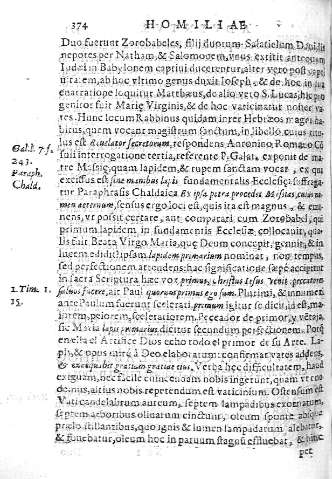 374 HOMILIAE
Duo fuerunt Zorobabeles, filij duorum Salatielum Dauidis
nepotes per Natham, & Salomonem, vnus extitit antequam
Iudæi in Babylonem captiui ducerentur, alter vero post
ab hoc vltimo genus duxit Ioseph, & de hoc in
loquitur Matthæus, de alio vero S. Lucas, hic pro
genitor fuit Mariæ Virginis, & de hoc vaticinatur noster va
tes. Hunc locum Rabbinus quidam inter Hebræos magni
quem vocant magistrum sanctum, in libello, cuius
Gal. l. 7. f.
lus est Reuelator secretorum, respondens Antonino Romano
243.
suit interrogatione tertia, referente P. Galat. exponit de ma
Paraph.
tre quam lapidem, & rupem sanctam vocat, ex qu
Chald.
excissus est sine manibus lapis fundamentalis Ecclesiæ: suffraga
tur Paraphrasis Chaldaica Ex ipsa
sensus ergo loci est, quis ita est magnus, & emi
nens, vt possit certare, aut comparari cum Zorobabel, qui
primum lapidem in fundamentis Ecclesiæ collocauit, qua
lis fuit Beata Virgo Maria, quæ Deum concepit, genuit, & in
lucem edidit? ipsam lapidem primarium nominat, non tempus,
sed perfectionem attendens: hac significatione sæpè accipitur
in sacra Scriptura hæc vox primus, Christus Iesus venit peccatores
1. Tim. 1.
saluos facere, ait Paul. quorum primus ego sum. Plurimi, & innumeri
15.
ante Paulum fuerunt scelerati, primum igitur se dicit, id est, ma
iorem, peiorem, sceleratiorem. Peccador de primor, y ventaja,
sic Maria lapis primarius dicitur secundum perfectionem. Porq
en ella el Artifice Dios echo todo el primor de su Arte. La
& opus mirè à Deo elaboratum: confirmat vates addens,
& exæquabit gratiam gratiæ eius, Verba hæc difficultatem, haud
exiguam, nec facile cuincunaam nobis ingerunt, quam vero
demus, altius nobis repetendum est vaticinium. Ostensum est
Vati candelabrum aureum, septem lampadibus exornatum,
septem arboribus oliuarum cinctum, oleum sponte absque
prælo stillantibus, quo ignis & lumen lampadarum alebatur,
& fouebatur, oleum hoc in paruum stagnum effluebat, & hinc
per